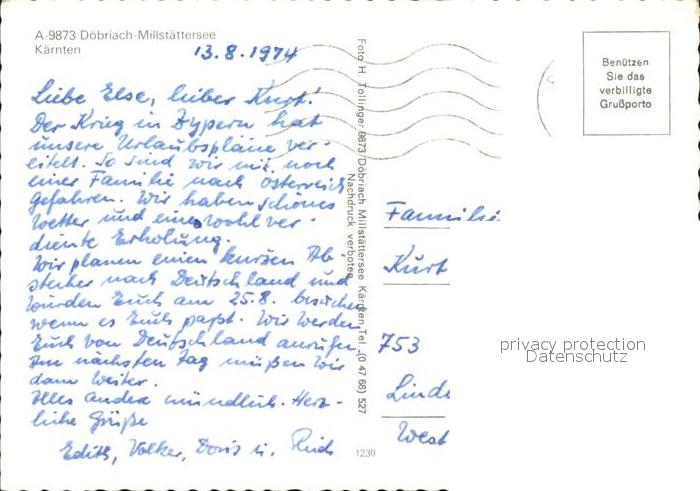 A-9873 Döbriach-Millstättersee
Kärnten
13.8.1974
Liebe Else, lieber Kurt!
Der Krieg in Zypern hat
unsere Urlaubspläne ver-
eitelt. So sind wir mit noch
einer Familie nach Österreich
gefahren. Wir haben schönes
Wetter und eine wohl ver-
diente Erholung.
Wir planen einen kurzen Ab-
stecher nach Deutschland und
würden Euch am 25.8. besuchen
wenn es Euch paßt. Wir werden
Euch von Deutschland anrufen.
Am nächsten Tag müßen wir
dann weiter.
Alles andere mündlich. Herz-
liche Grüße
Edith, Volker, Doris u.
Foto H. Tollinger 9873 Döbriach Millstättersee Kärnten Tel. (0 47 66) 527
Nachdruck verboten
1230
Benützen
Sie das
verbilligte
Grußporto
Familie
Kurt
753
Linde
West
privacy protection
Datenschutz